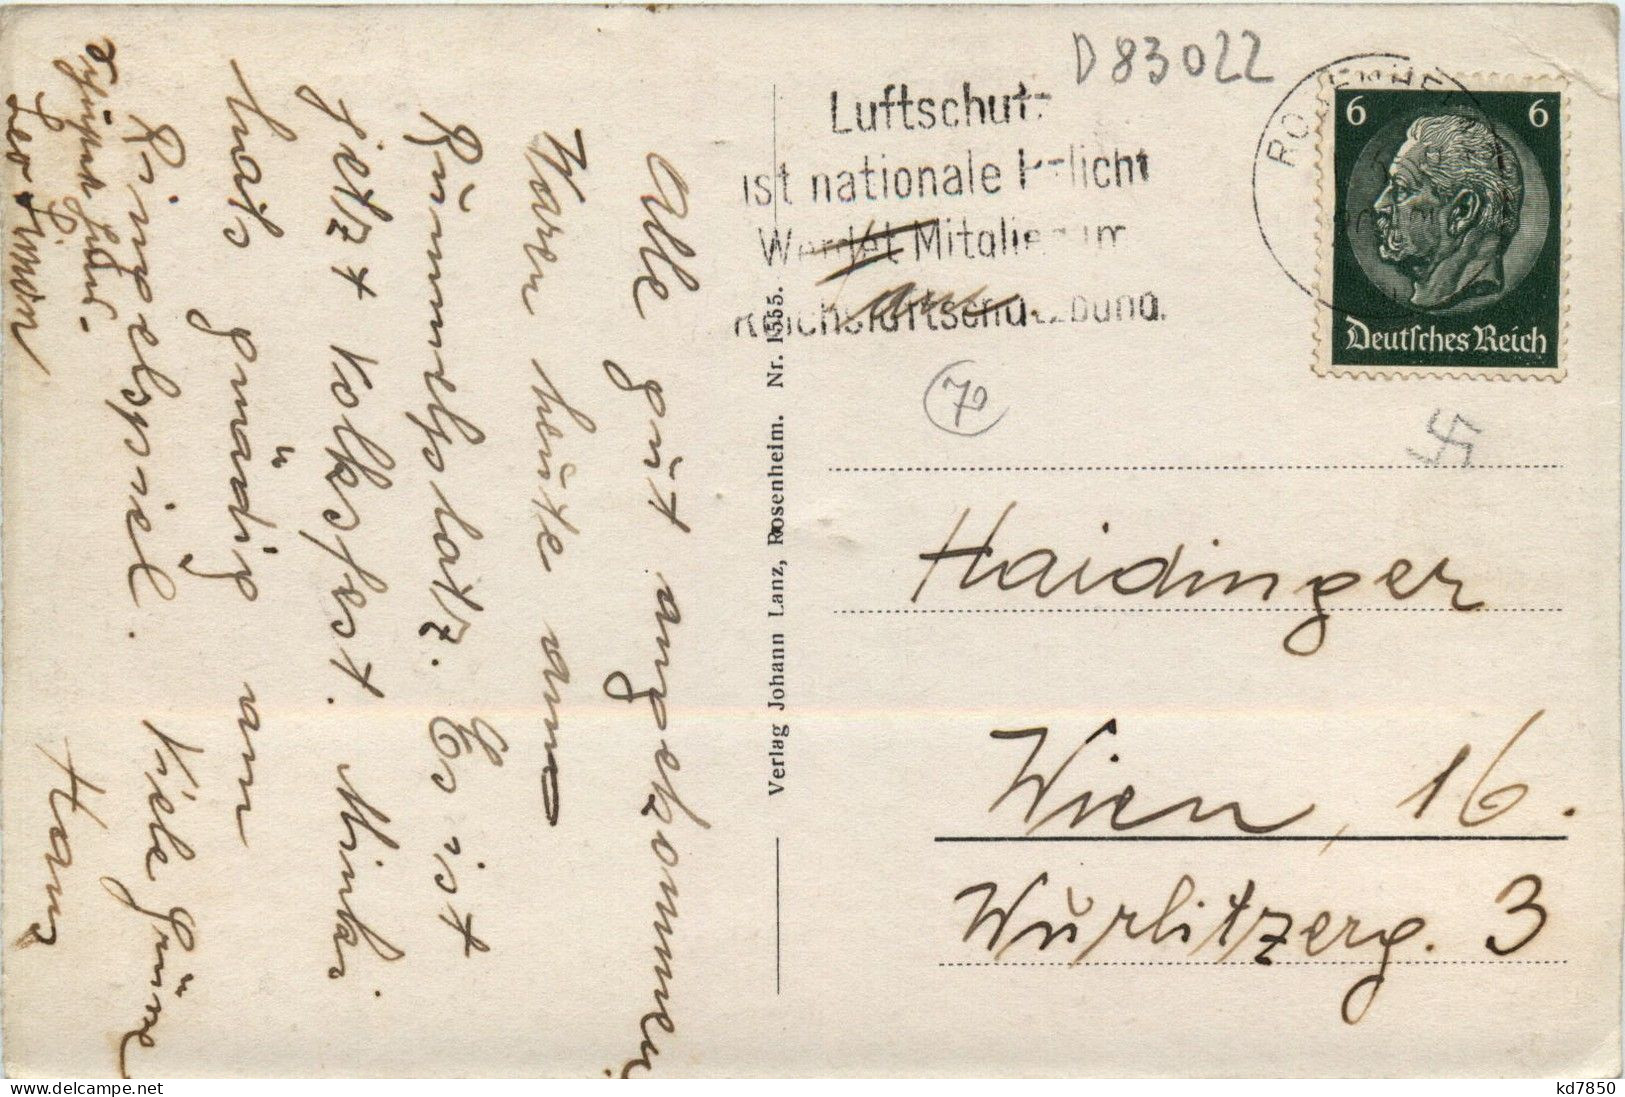 D 83022
Luftschutz
ist nationale Pflicht
Werdet Mitglied im
Reichsluftschutzbund.
ROSENHEIM
6 6
Deutsches Reich
70
Haidinger
Wien, 16.
Wurlitzerg. 3
Verlag Johann Lanz, Rosenheim. Nr. 1555.
Alle gut angekommen
Waren heute am
Rummelsplatz. Es ist
jetzt Volksfest.
hats gnädig am
Ringelspiel. Viele Grüße
Hans
Leo Simon
kd7850